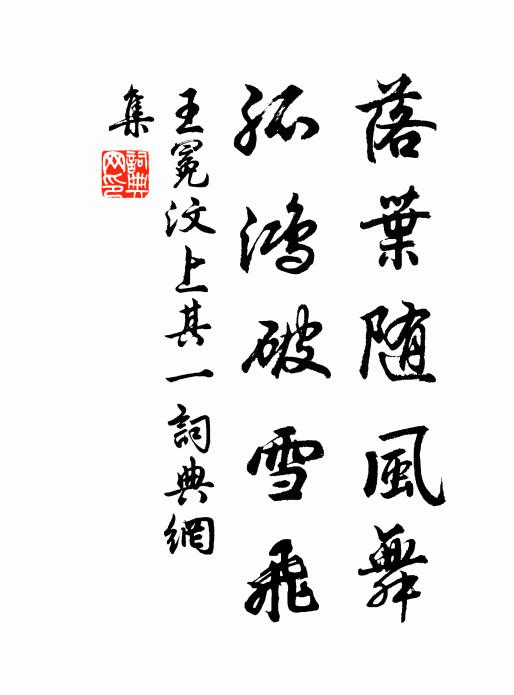 落葉随風舞
孤鴻破雪飛
王冕汶上其一詞典網
集
詞典網印